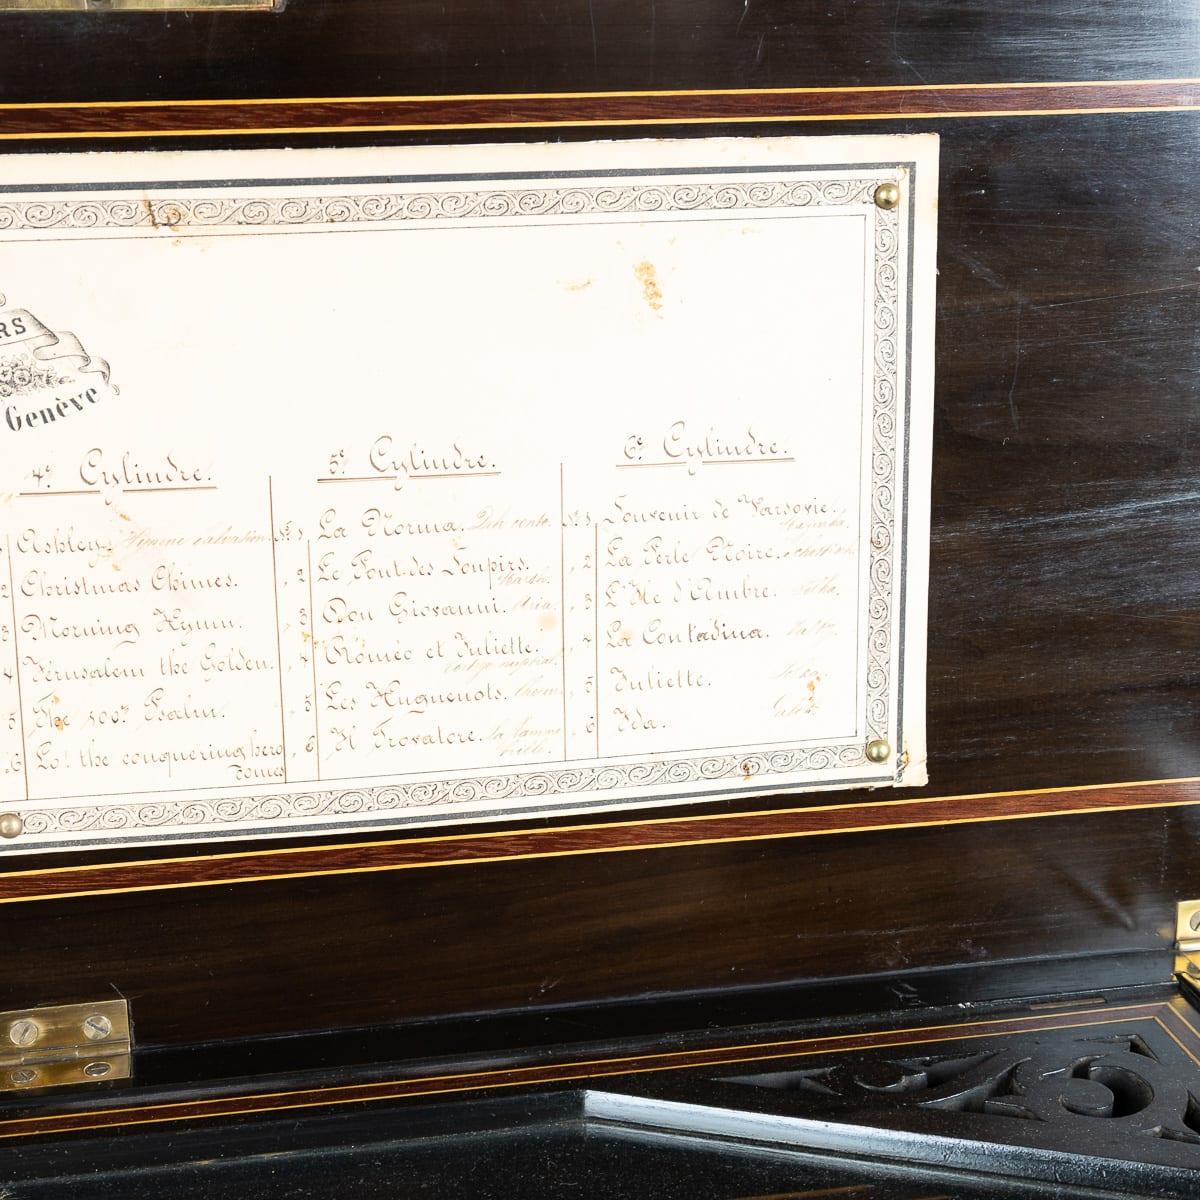 RS
Genève
4e Cylindre.
Ashley. Hymne Salvation.
2 Christmas Chimes.
3 Morning Hymn.
4 Jerusalem the Golden.
5 The 100th Psalm.
6 Lo! the conquering hero
Comes
5e Cylindre.
No 1 La Norma.
2 Le Pont des Soupirs.
3 Don Giovanni. Aria.
4 Roméo et Juliette.
5 Les Huguenots.
6 Il Trovatore.
6e Cylindre.
No 1 Souvenir de Varsovie.
Mazurka.
2 La Perle Noire. Schottisch.
3 L'Ile d'Ambre. Polka.
4 La Contadina. Valse.
5 Juliette.
6 Ida. Galop.